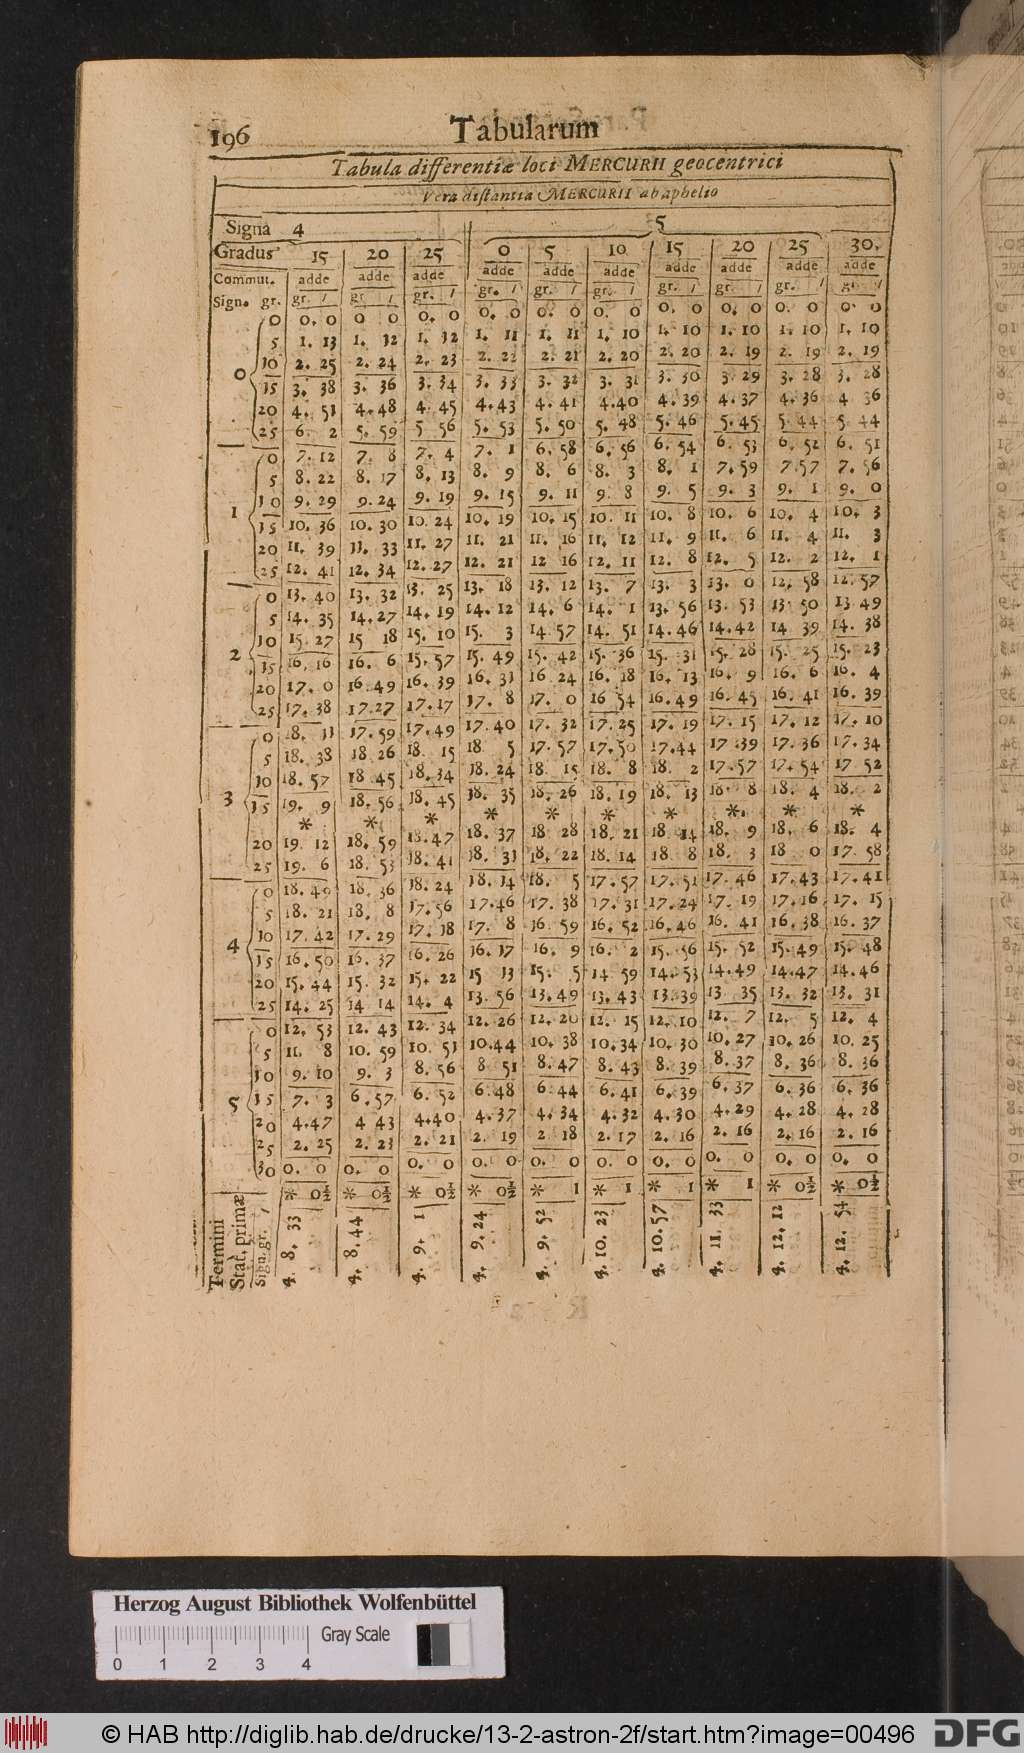 196
Tabularum
Tabula differentiæ loci MERCURII geocentrici
Vera distantia MERCURII ab aphelio
Signa 4 5
Gradus 15 20 25 0 5 10 15 20 25 30.
Commut. adde adde adde adde adde adde adde adde adde adde
Sign. gr. gr. / gr / gr. / gr. / gr. / gr. / gr. / gr. / gr. / gr /
0 0 0. 0 0 0 0. 0 0. 0 0. 0 0. 0 0. 0 0. 0 0. 0 0. 0
5 1. 13 1. 12 1. 12 1. 11 1. 11 1. 10 1. 10 1. 10 1. 10 1. 10
10 2. 25 2. 24 2. 23 2. 22 2. 21 2. 20 2. 20 2. 19 2. 19 2. 19
15 3. 38 3. 36 3. 34 3. 33 3. 32 3. 31 3. 30 3. 29 3. 28 3. 28
20 4. 51 4. 48 4. 45 4. 43 4. 41 4. 40 4. 39 4. 37 4. 36 4 36
25 6. 2 5. 59 5 56 5. 53 5. 50 5. 48 5. 46 5. 45 5 44 5 44
1 0 7. 12 7. 8 7. 4 7. 1 6. 58 6. 56 6. 54 6. 53 6. 52 6. 51
5 8. 22 8. 17 8. 13 8. 9 8. 6 8. 3 8. 1 7. 59 7. 57 7. 56
10 9. 29 9. 24 9. 19 9. 15 9. 11 9. 8 9. 5 9. 3 9. 1 9. 0
15 10. 36 10. 30 10. 24 10. 19 10. 15 10. 11 10. 8 10. 6 10. 4 10. 3
20 11. 39 11. 33 11. 27 11. 21 11. 16 11. 12 11. 9 11. 6 11. 4 11. 3
25 12. 41 12. 34 12. 27 12. 21 12 16 12. 11 12. 8 12. 5 12. 2 12. 1
2 0 13. 40 13. 32 13. 25 13. 18 13. 12 13. 7 13. 3 13. 0 12. 58 12. 57
5 14. 35 14. 27 14. 19 14. 12 14. 6 14. 1 13. 56 13. 53 13. 50 13 49
10 15. 27 15 18 15. 10 15. 3 14. 57 14. 51 14. 46 14. 42 14 39 14. 38
15 16. 16 16. 6 15. 57 15. 49 15. 42 15. 36 15. 31 15. 28 15. 25 15. 23
20 17. 0 16. 49 16. 39 16. 31 16 24 16. 18 16. 13 16. 9 16. 6 16. 4
25 17. 38 17. 27 17. 17 17. 8 17. 0 16 54 16. 49 16. 45 16. 41 16. 39
3 0 18. 11 17. 59 17. 49 17. 40 17. 32 17. 25 17. 19 17. 15 17. 12 17. 10
5 18. 38 18 26 18. 15 18 5 17. 57 17. 50 17. 44 17 39 17. 36 17. 34
10 18. 57 18 45 18. 34 18. 24 18. 15 18. 8 18. 2 17. 57 17. 54 17 52
15 19. 9 18. 56 18. 45 18. 35 18. 26 18. 19 18. 13 18. 8 18. 4 18. 2
* * * * * * * * * *
20 19. 12 18. 59 18. 47 18. 37 18 28 18. 21 18 14 18. 9 18. 6 18. 4
25 19. 6 18. 53 18. 41 18. 31 18. 22 18. 14 18 8 18. 3 18 0 17 58
4 0 18. 49 18. 36 18. 24 18. 14 18. 5 17. 57 17. 51 17. 46 17. 43 17. 41
5 18. 21 18. 8 17. 56 17. 46 17. 38 17. 31 17. 24 17. 19 17. 16 17. 15
10 17. 42 17. 29 17. 18 17. 8 16. 59 16. 52 16. 46 16. 41 16. 38 16. 37
15 16. 50 16. 37 16. 26 16. 17 16. 9 16. 2 15. 56 15. 52 15. 49 15. 48
20 15. 44 15. 32 15. 22 15 13 15. 5 14 59 14. 53 14. 49 14. 47 14. 46
25 14. 25 14 14 14. 4 13. 56 13. 49 13. 43 13. 39 13 35 13. 32 13. 31
5 0 12. 53 12. 43 12. 34 12. 26 12. 20 12. 15 12. 10 12. 7 12. 5 12. 4
5 11. 8 10. 59 10. 51 10. 44 10. 38 10. 34 10. 30 10. 27 10. 26 10. 25
10 9. 10 9. 3 8. 56 8 51 8. 47 8. 43 8. 39 8. 37 8. 36 8. 36
15 7. 3 6. 57 6. 52 6. 48 6. 44 6. 41 6. 39 6. 37 6. 36 6. 36
20 4. 47 4 43 4. 40 4. 37 4. 34 4. 32 4. 30 4. 29 4. 28 4. 28
25 2. 25 2. 23 2. 21 2. 19 2 18 2. 17 2. 16 2. 16 2. 16 2. 16
30 0. 0 0. 0 0. 0 0. 0 0. 0 0. 0 0. 0 0. 0 0. 0 0. 0
* 0½ * 0½ * 0½ * 0½ * 1 * 1 * 1 * 1 * 0½ * 0½
Termini
Stat. primæ
Sign. gr. /
4. 8. 33
4. 8. 44
4. 9. 1
4. 9. 24
4. 9. 52
4. 10. 23
4. 10. 57
4. 11. 33
4. 12. 12
4. 12. 54
Herzog August Bibliothek Wolfenbüttel
Gray Scale
0 1 2 3 4
© HAB http://diglib.hab.de/drucke/13-2-astron-2f/start.htm?image=00496
DFG